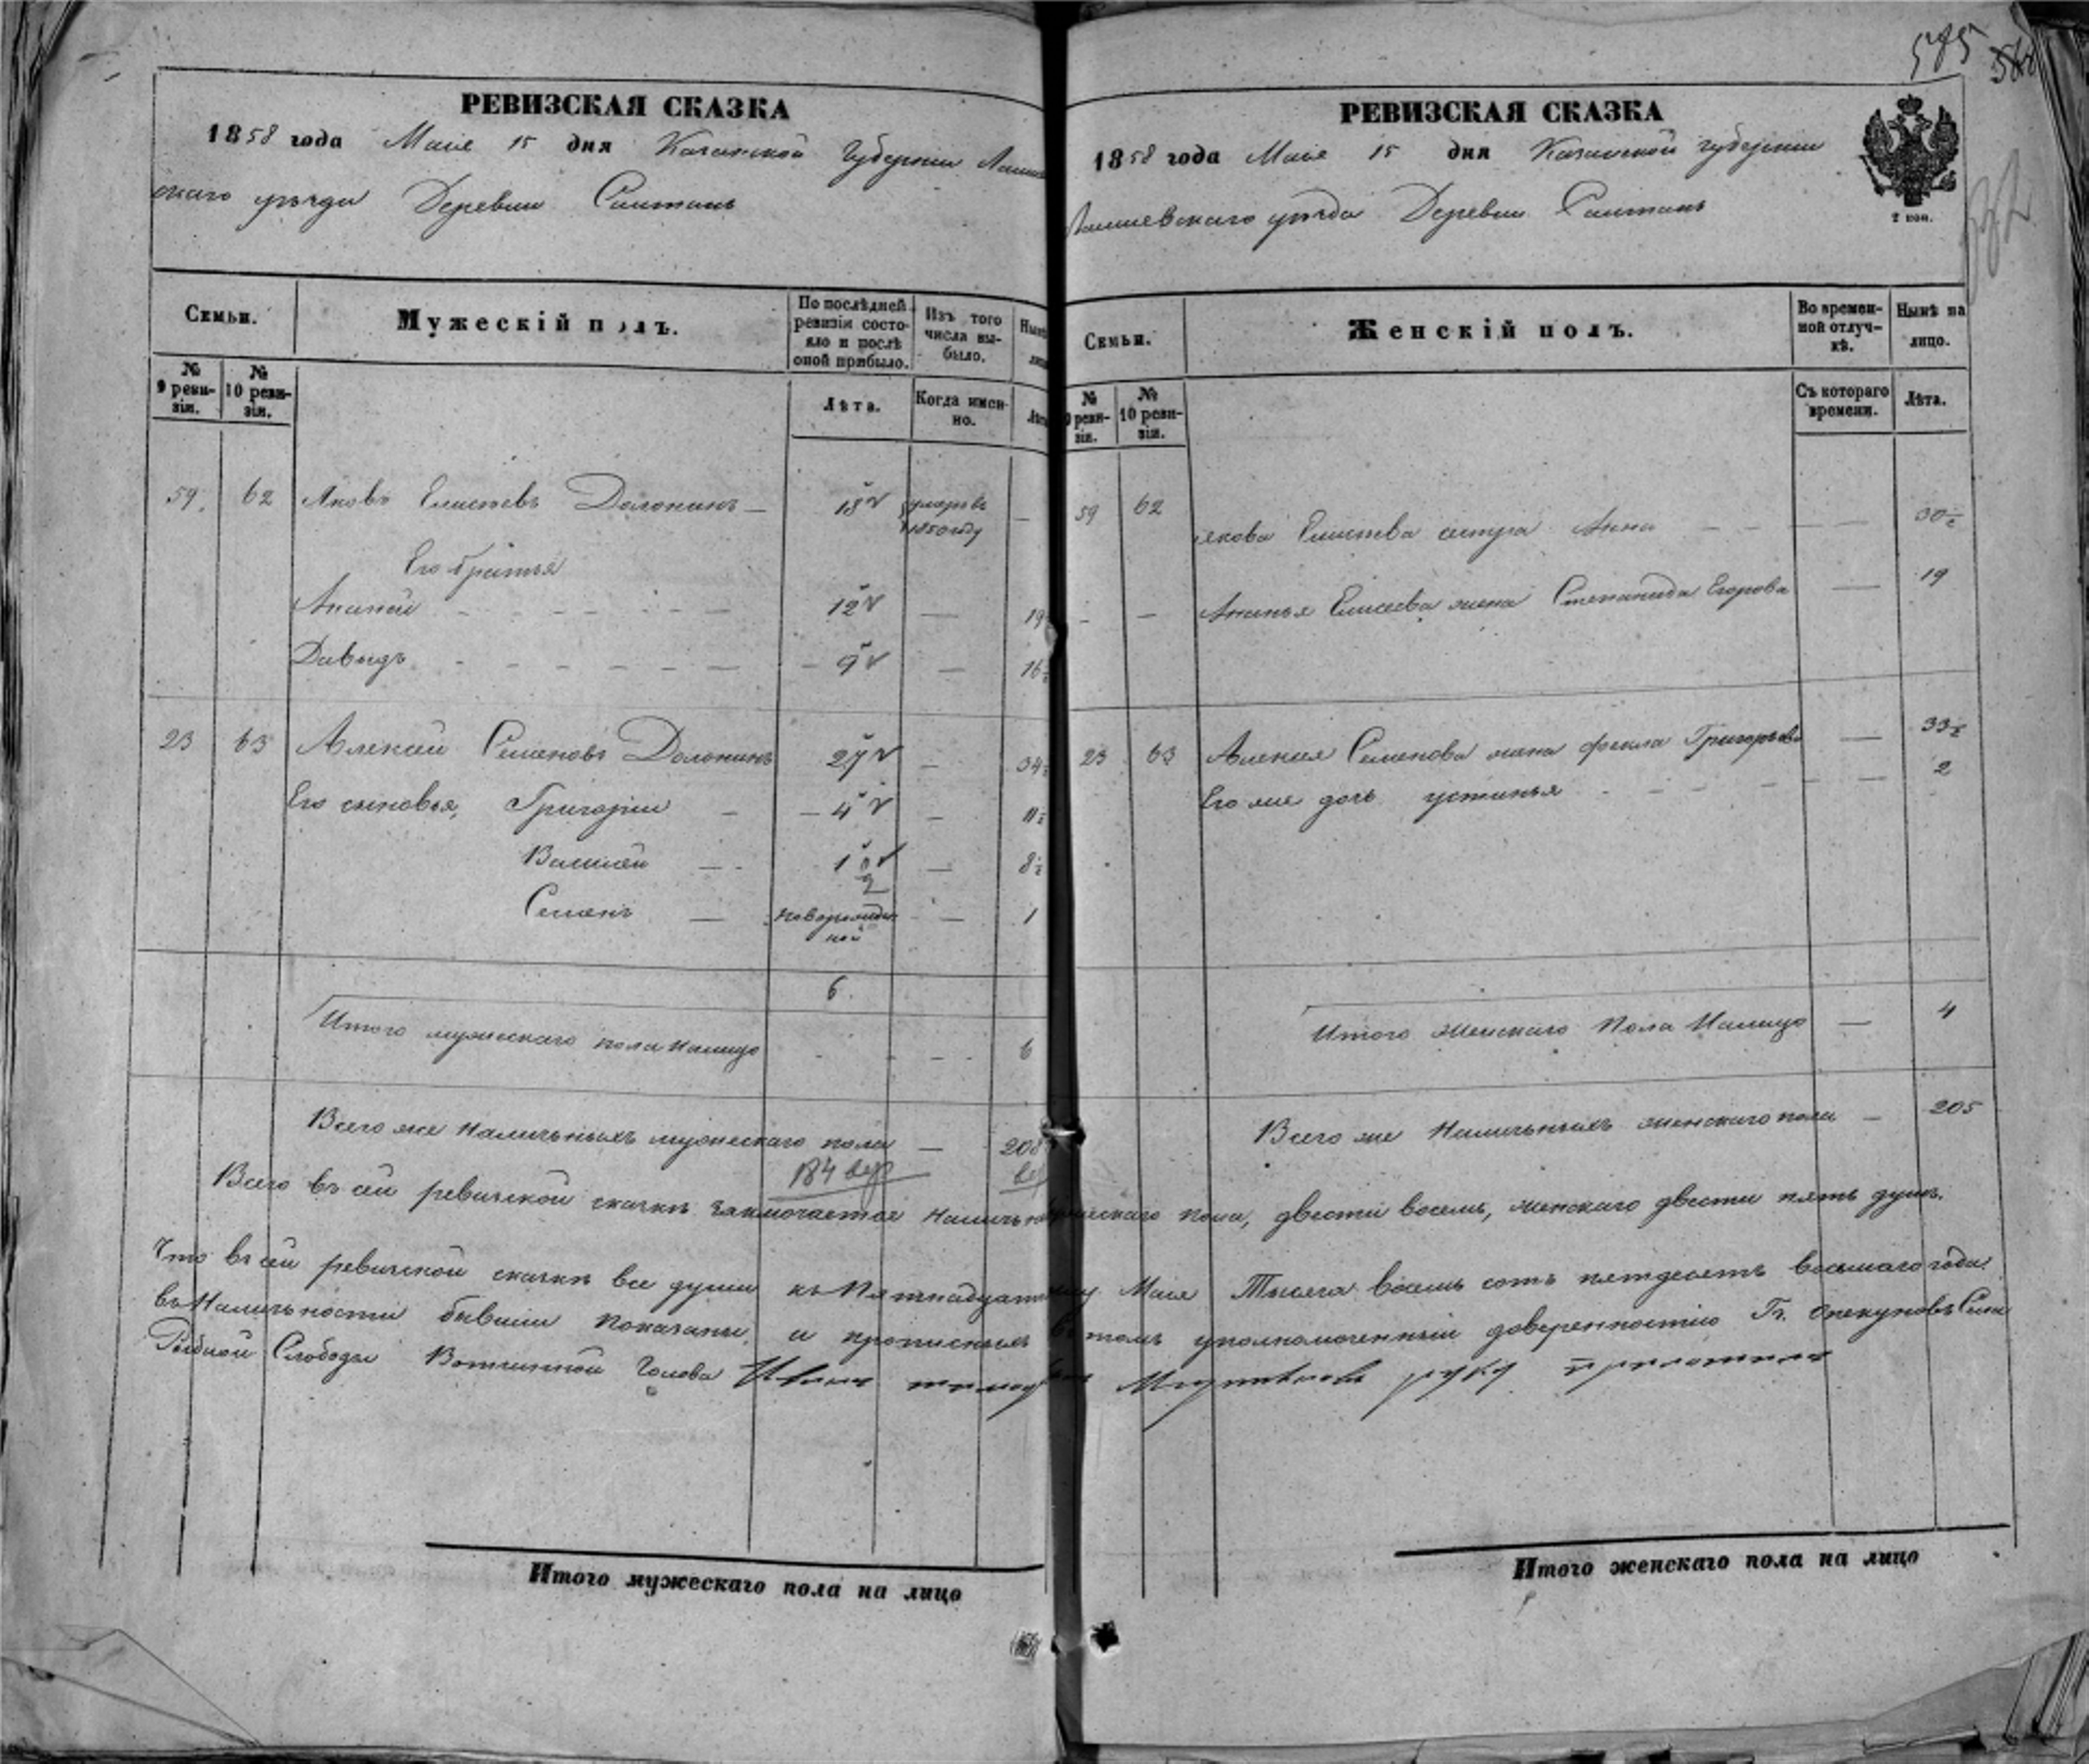 РЕВИЗСКАЯ СКАЗКА
1858 года Маія 15 дня Казанской Губерніи Лаишев
скаго уѣзда Деревни Саитань
Семьи.
Мужескій полъ.
По послѣдней ревизіи состояло и послѣ оной прибыло.
Изъ того числа выбыло.
Нынѣ
№ 9 ревизіи.
№ 10 ревизіи.
Лѣта.
Когда именно.
Лѣта
59. 62 Яковъ Елисѣевъ Долонинъ — 18 умеръ въ 1850 году —
Его братья
Ананій 12 — 19
Давыдъ 9 — 16½
23 63 Алексѣй Семеновъ Долонинъ 27 — 34½
Его сыновья, Григорій — 4 — 11½
Василій — 1 — 8½
2
Семенъ — новорожденной — 1
6.
Итого мужескаго пола налицо 6
Всего же наличныхъ мужескаго пола — 208
184
РЕВИЗСКАЯ СКАЗКА
1858 года Маія 15 дня Казанской Губерніи
Лаишевскаго уѣзда Деревни Саитань
2 коп.
575
Семьи.
Женскій полъ.
Во временной отлучкѣ.
Нынѣ на лицо.
№ 9 ревизіи.
№ 10 ревизіи.
Съ котораго времени.
Лѣта.
59 62 Якова Елисѣева сестра Анна — 30½
— — Ананья Елисеева жена Степанида Егорова — 19
23 63 Алексея Семенова жена Фекла Григорьева — 33½
Его же дочь Устинья — 2
Итого женскаго пола налицо — 4
Всего же наличныхъ женскаго пола — 205
Всего въ сей ревизской сказкѣ заключается наличныхъ мужескаго пола, двести восемь, женскаго двести пять душъ.
Что въ сей ревизской сказкѣ все души къ пятнадцатому Маія Тысяча восемь сотъ пятдесятъ восьмаго года
въ наличности бывшіи показаны, и прописныхъ въ томъ уполномоченный доверенностію Гг. опекуновъ Села
Рыбной Слободы Вотчинной Голова руку приложилъ
Итого мужескаго пола на лицо
Итого женскаго пола на лицо